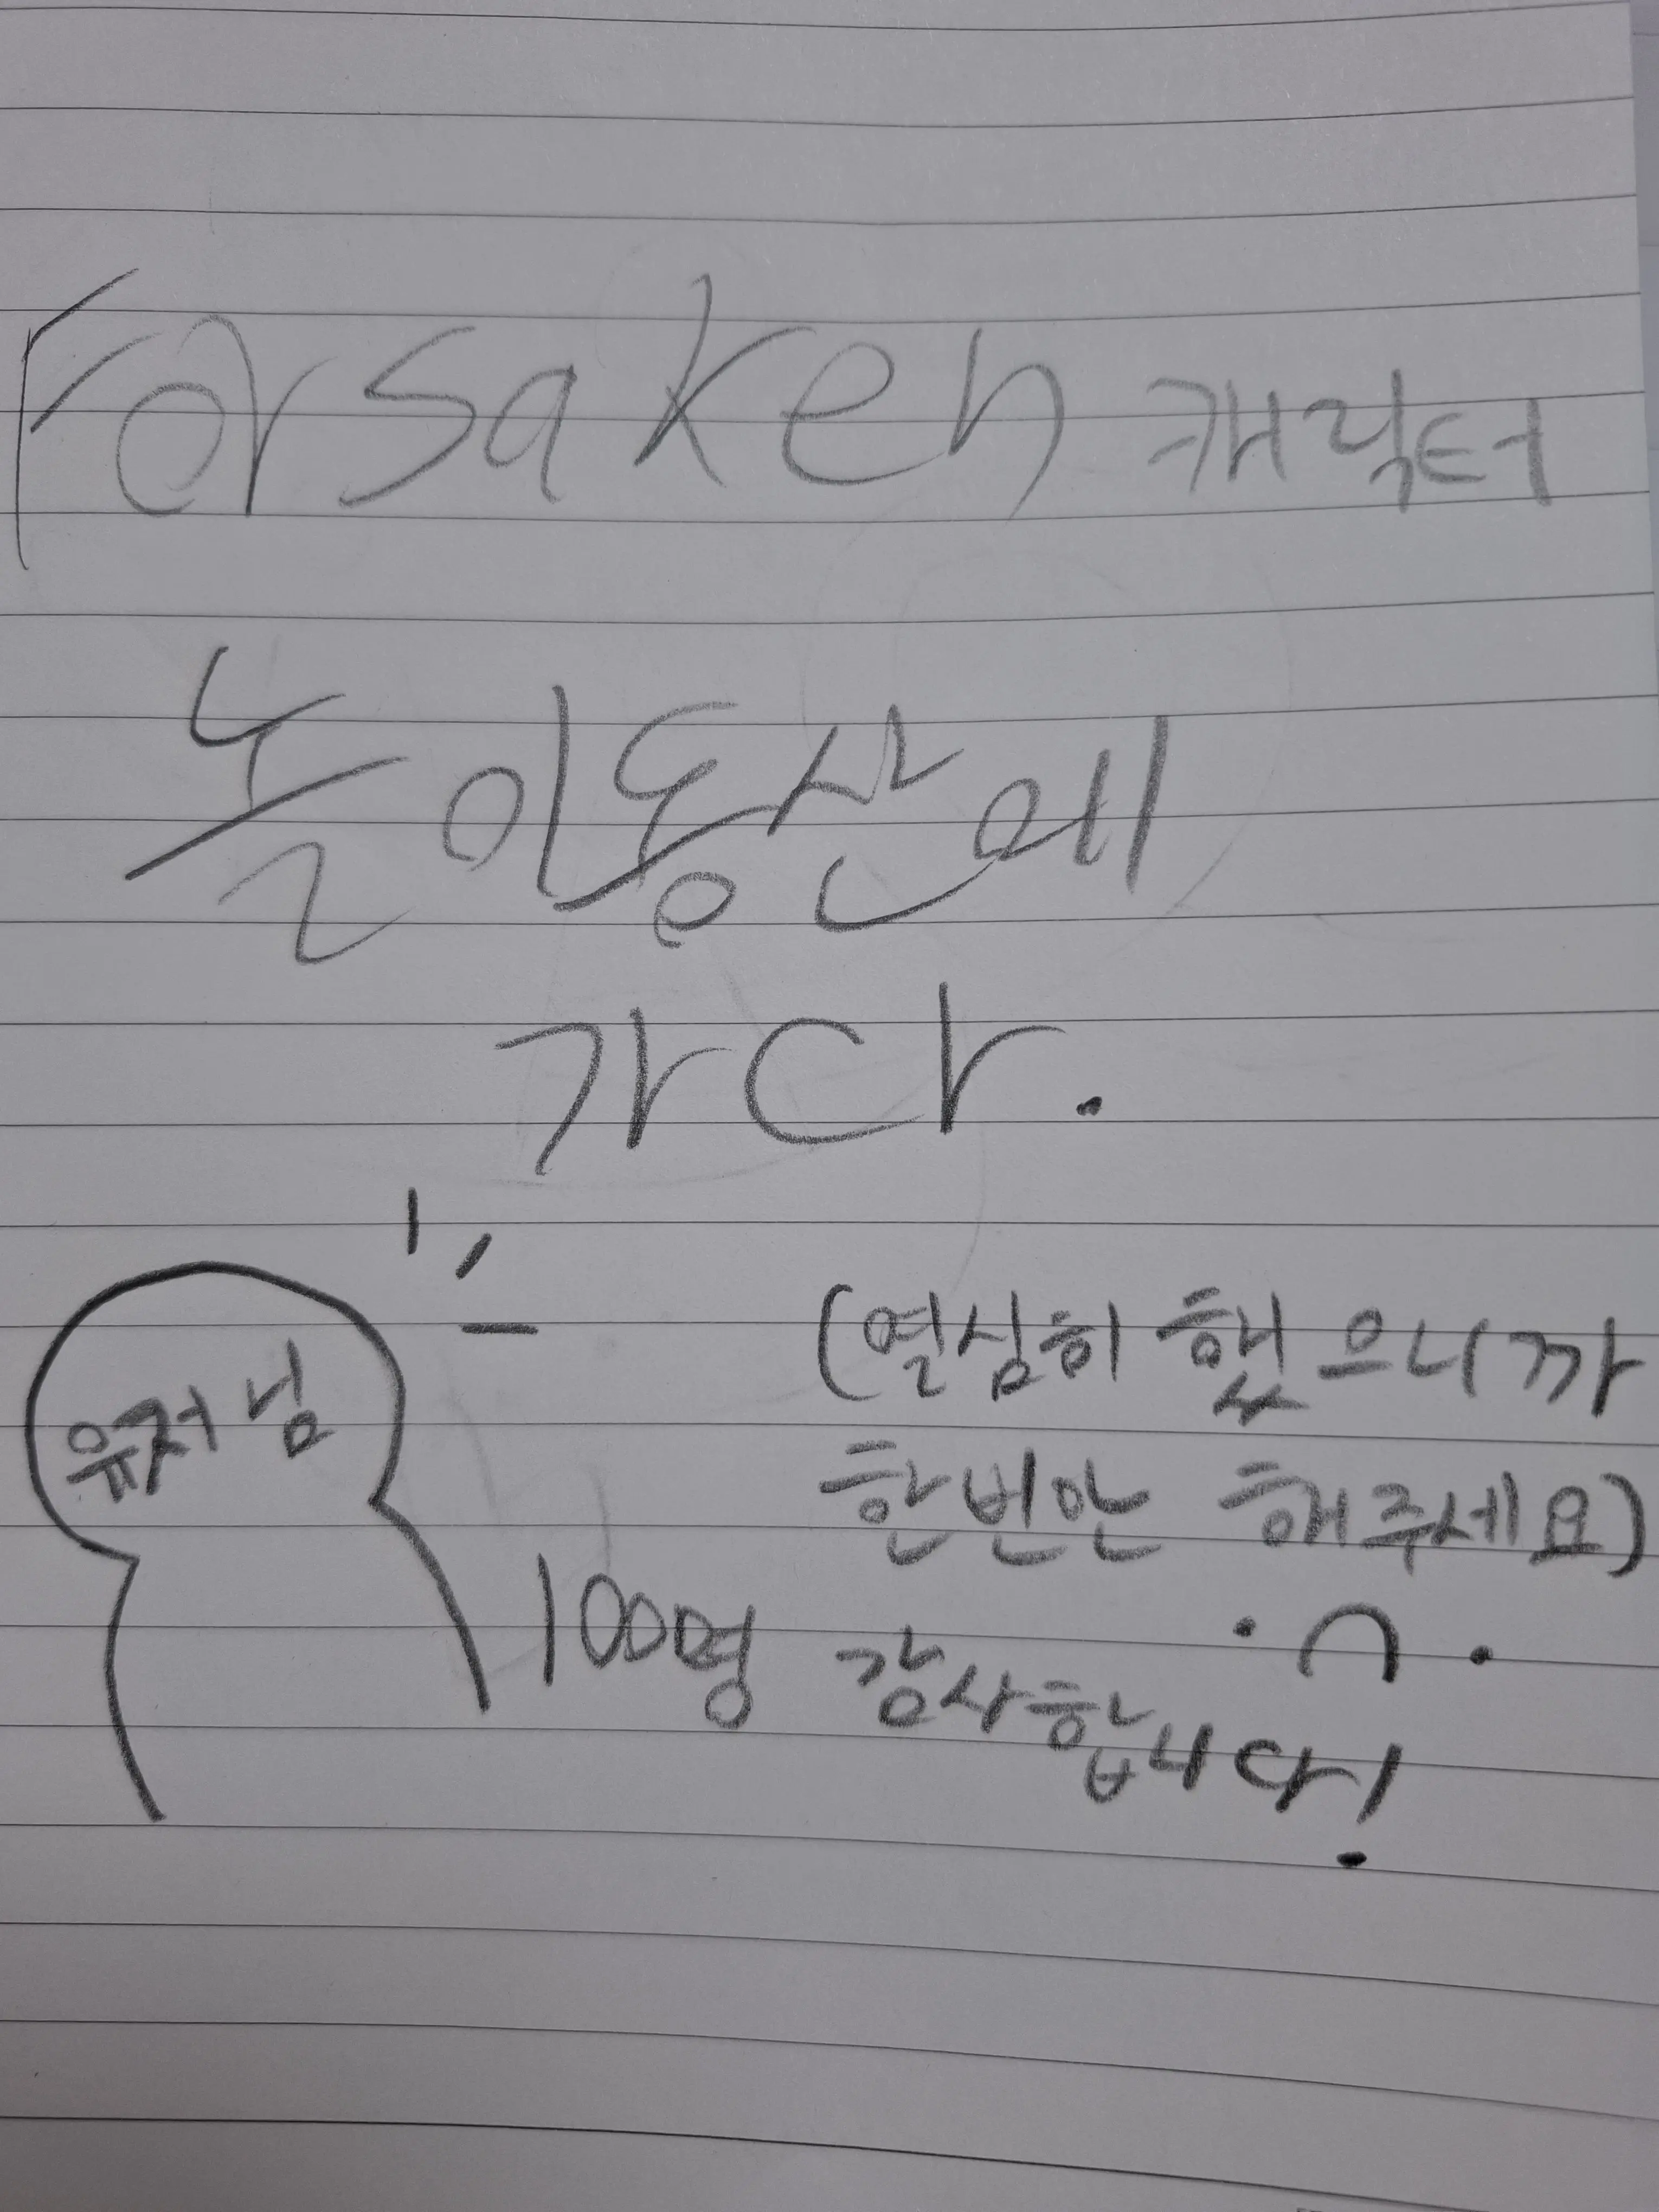 Forsaken 캐릭터
놀이동산에
가다.
유저님
(열심히 했으니까
한번만 해주세요)
100명 감사합니다!